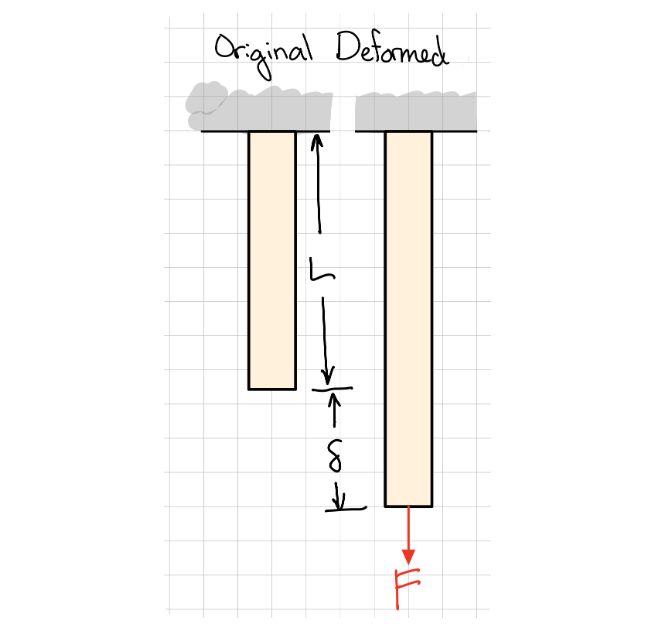 Original Deformed
L
δ
F